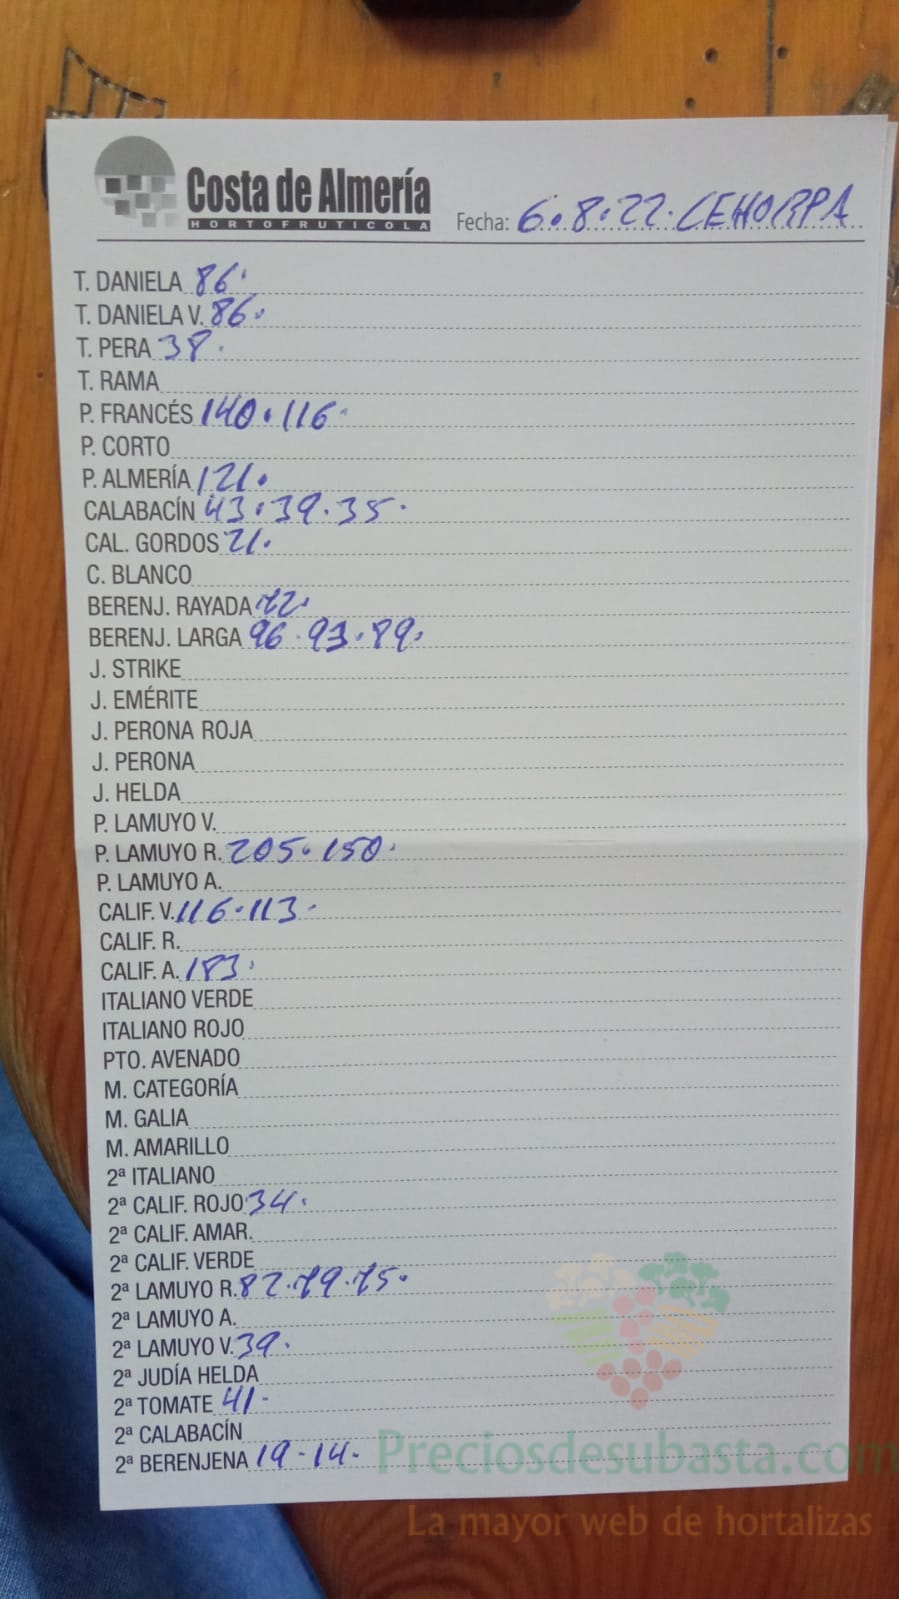 Costa de Almería
HORTOFRUTICOLA
Fecha: 6.8.22. CEHORPA
T. DANIELA 86.
T. DANIELA V. 86.
T. PERA 38.
T. RAMA
P. FRANCÉS 140.116.
P. CORTO
P. ALMERÍA 121.
CALABACÍN 43.39.35.
CAL. GORDOS 21.
C. BLANCO
BERENJ. RAYADA 72.
BERENJ. LARGA 96.93.89.
J. STRIKE
J. EMÉRITE
J. PERONA ROJA
J. PERONA
J. HELDA
P. LAMUYO V.
P. LAMUYO R. 205.150.
P. LAMUYO A.
CALIF. V. 116.113.
CALIF. R.
CALIF. A. 183.
ITALIANO VERDE
ITALIANO ROJO
PTO. AVENADO
M. CATEGORÍA
M. GALIA
M. AMARILLO
2ª ITALIANO
2ª CALIF. ROJO 34.
2ª CALIF. AMAR.
2ª CALIF. VERDE
2ª LAMUYO R. 82.79.75.
2ª LAMUYO A.
2ª LAMUYO V. 39.
2ª JUDÍA HELDA
2ª TOMATE 41.
2ª CALABACÍN
2ª BERENJENA 19.14.
Preciosdesubasta.com
La mayor web de hortalizas